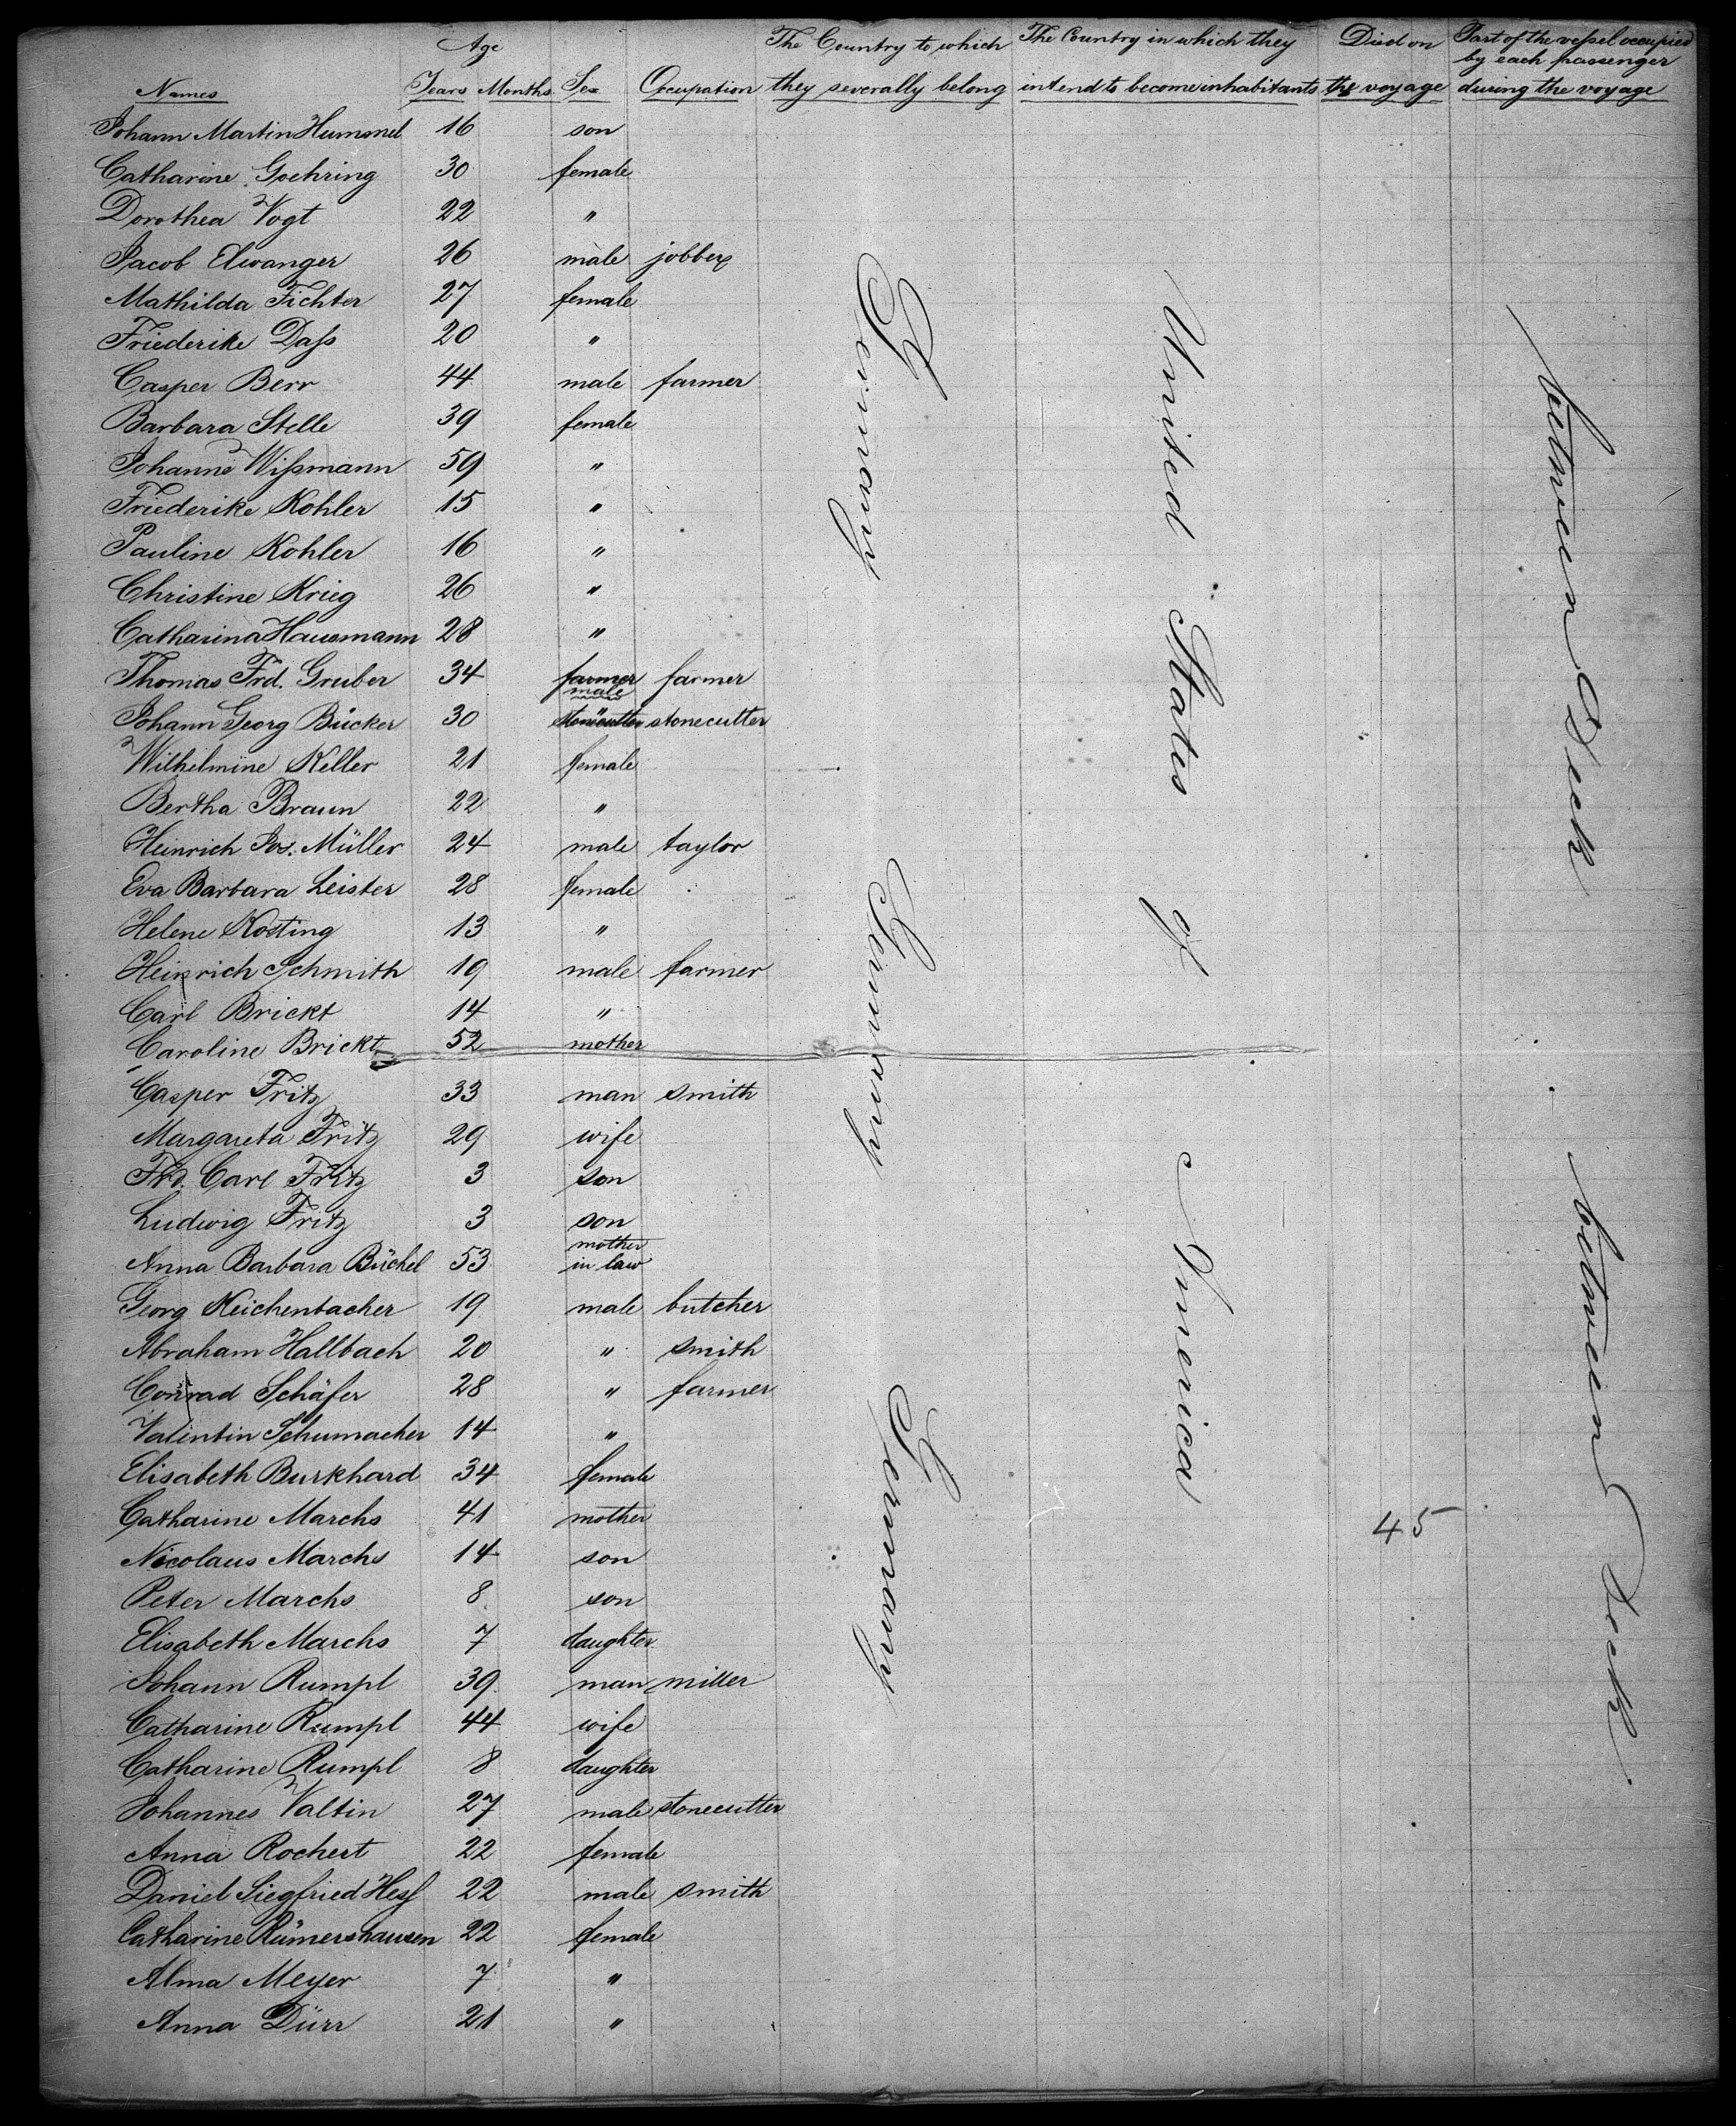 Age The Country to which The Country in which they Died on Part of the vessel occupied
by each passenger
Names Years Months Sex Occupation they severally belong intend to become inhabitants the voyage during the voyage
Johann Martin Hummel 16 son
Catharine Goehring 30 female
Dorothea Vogt 22 "
Jacob Elwanger 26 male jobber
Mathilda Fichter 27 female
Friederike Dass 20 "
Casper Berr 44 male farmer
Barbara Stelle 39 female
Johanne Wissmann 59 "
Friederike Kohler 15 "
Pauline Kohler 16 "
Christine Krieg 26 "
Catharina Hausmann 28 "
Thomas Frd. Gruber 34 farmer farmer
male
Johann Georg Bücker 30 stonecutter " stonecutter
Wilhelmine Keller 21 female
Bertha Braun 22 "
Heinrich Jos. Müller 24 male taylor
Eva Barbara Leister 28 female
Helene Kosting 13 "
Heinrich Schmith 19 male farmer
Carl Brickt 14 "
Caroline Brickt 52 mother
Casper Fritz 33 man smith
Margareta Fritz 29 wife
Frd. Carl Fritz 3 son
Ludwig Fritz 3 son
mother
Anna Barbara Büchel 53 in law
Georg Keichenbacher 19 male butcher
Abraham Hallbach 20 " smith
Conrad Schäfer 28 " farmer
Valentin Schumacher 14 "
Elisabeth Burkhard 34 female
Catharine Marchs 41 mother
45
Nicolaus Marchs 14 son
Peter Marchs 8 son
Elisabeth Marchs 7 daughter
Johann Rumpl 39 man miller
Catharine Rumpl 44 wife
Catharine Rumpl 8 daughter
Johannes Valtin 27 male stonecutter
Anna Rochert 22 female
Daniel Siegfried Hess 22 male smith
Catharine Rümershausen 22 female
Alma Meyer 7 "
Anna Dürr 21 "
Germany
Germany
Germany
United States of America
between Deck
between Deck